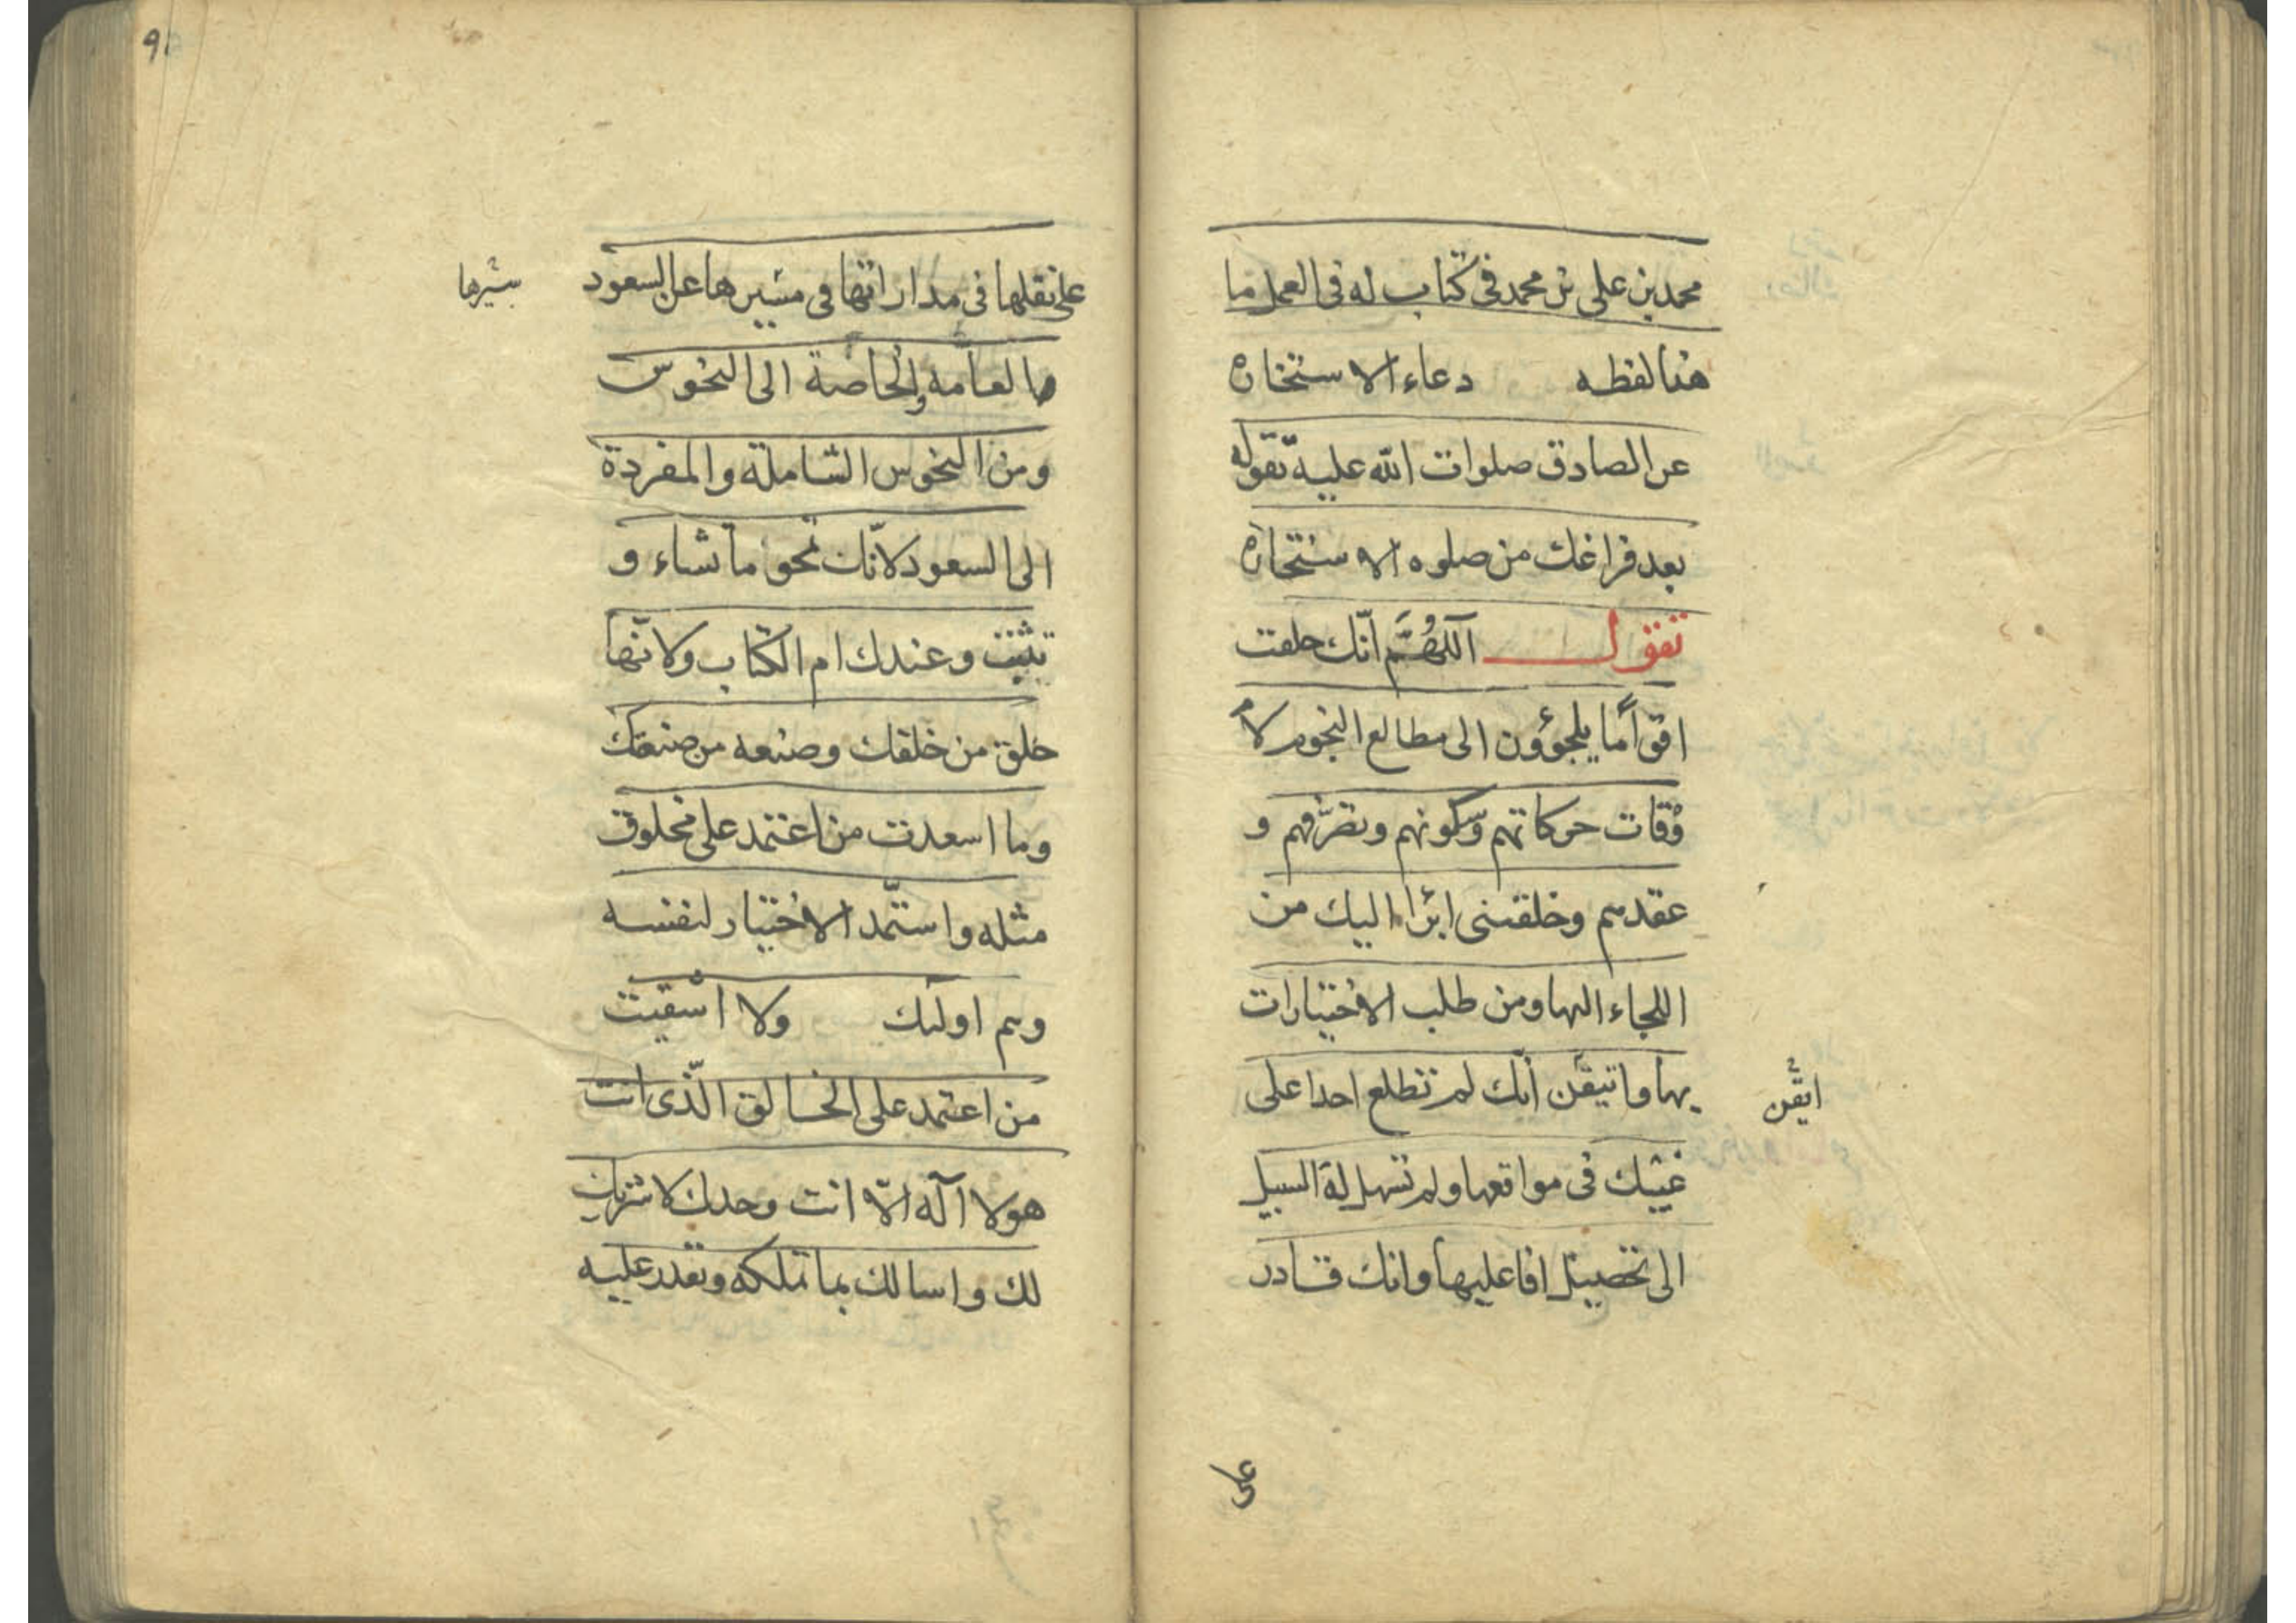 محمد بن على بن محمد فى كتاب له فى العمل ما
هذا لفظه دعاء الاستخارة
عن الصادق صلوات الله عليه تقوله
بعد فراغك من صلوه الاستخارة
تقول اَللّهُمَّ انّك خلقت
اقواماً يلجؤون الى مطالع النجوم لاَ
وْقات حركاتهم وسكونهم وتصرّفهم و
عقدهم وخلقتنى ابرا اليك من
اللجاء اليها ومن طلب الاختيارات
بها واتيقّن انّك لم تطلع احدا على
ايقّن
غيبك فى مواقعها ولم تسهل له السبيل
الى تحصيل افاعليها وانك قادر
على
91
على نقلها فى مداراتها فى مسيرها عن السعود
سيرها
العامة والخاصة الى النحوس
ومن النحوس الشاملة والمفردة
الى السعود لانّك تمحو ما تشاء و
تثبت وعندك ام الكتاب ولانّها
خلق من خلقك وصنعه من صنعتك
وما اسعدت من اعتمد على مخلوق
مثله واستمّد الاختيار لنفسه
وهم اولئك ولا اشقيت
من اعتمد على الخالق الّذى انت
هو لا آله الاّ انت وحدك لا شريك
لك واسالك بما تملكه وتقدر عليه